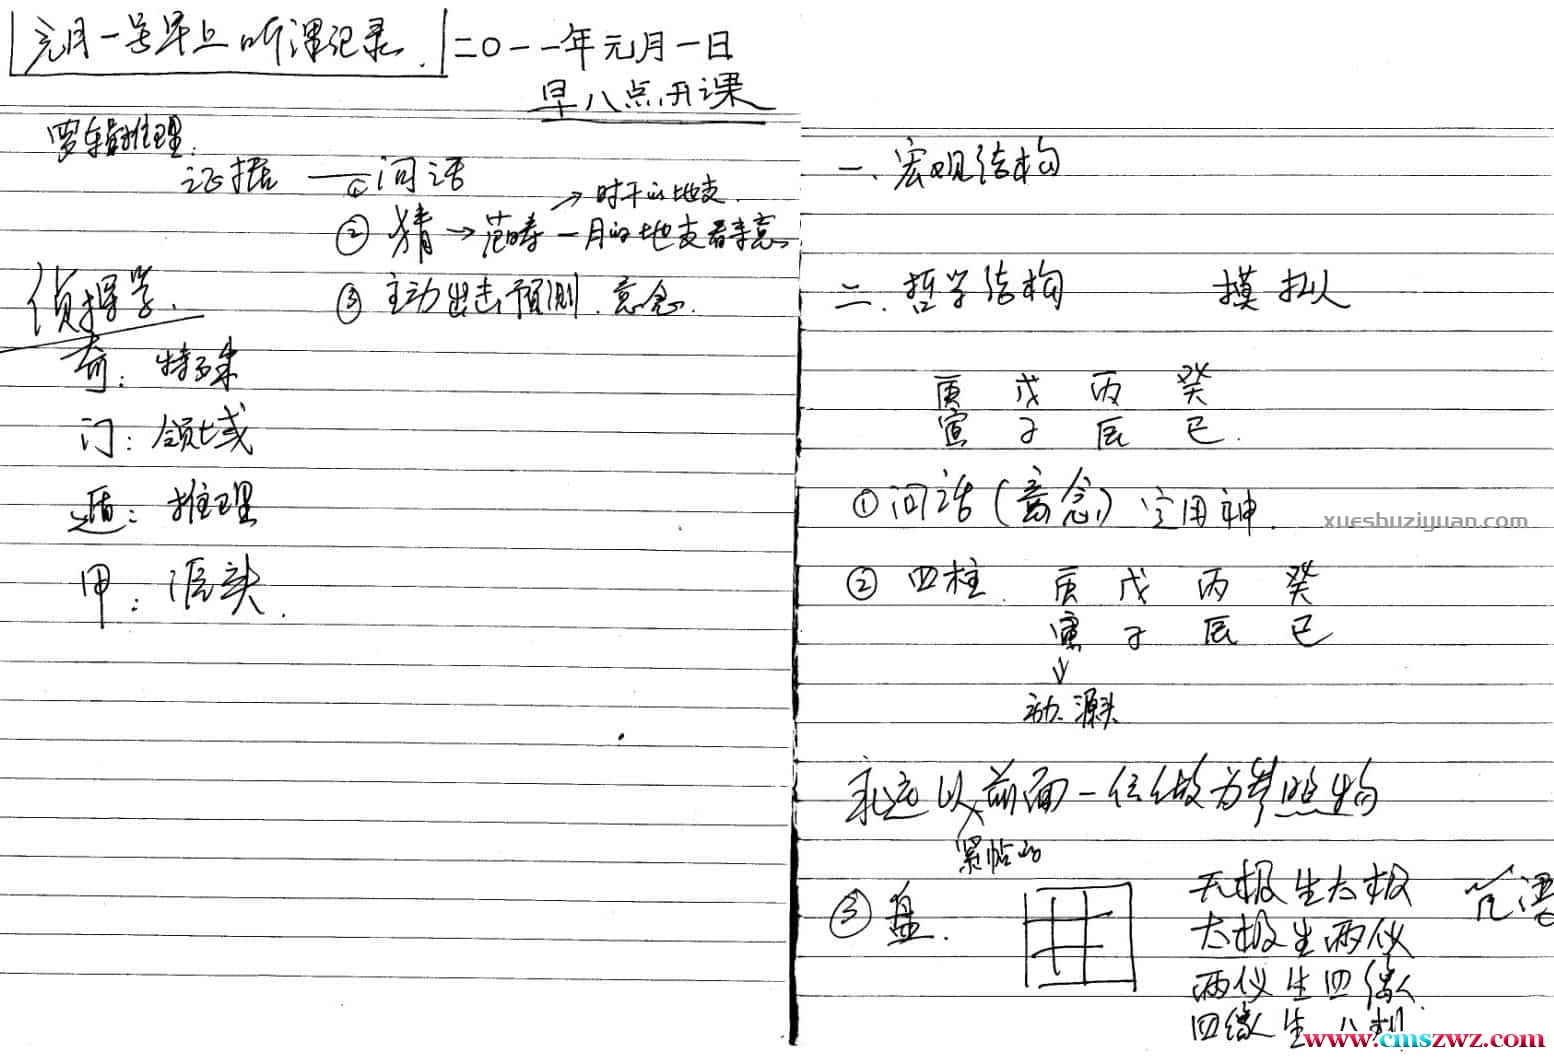 元月一号早上听课记录.
二〇一一年元月一日
早八点开课
罗辑推理:
证据 ① 问话
→时干的地支.
② 猜 → 范畴 一月的地支看来意.
③ 主动出击预测.意念.
侦探学.
奇: 特殊
门: 领域
遁: 推理
甲: 源头.
一. 宏观结构
二. 哲学结构 模拟
庚 戊 丙 癸
寅 子 辰 巳.
① 问话(意念) 定用神.
② 四柱. 庚 戊 丙 癸
寅 子 辰 巳
↓
动.源头
永远以前面一位做为参照物
紧帖的
③ 盘.
无极生太极
太极生两仪
两仪生四象.
四象生八卦
xueshuziyuan.com
www.cmszwz.com